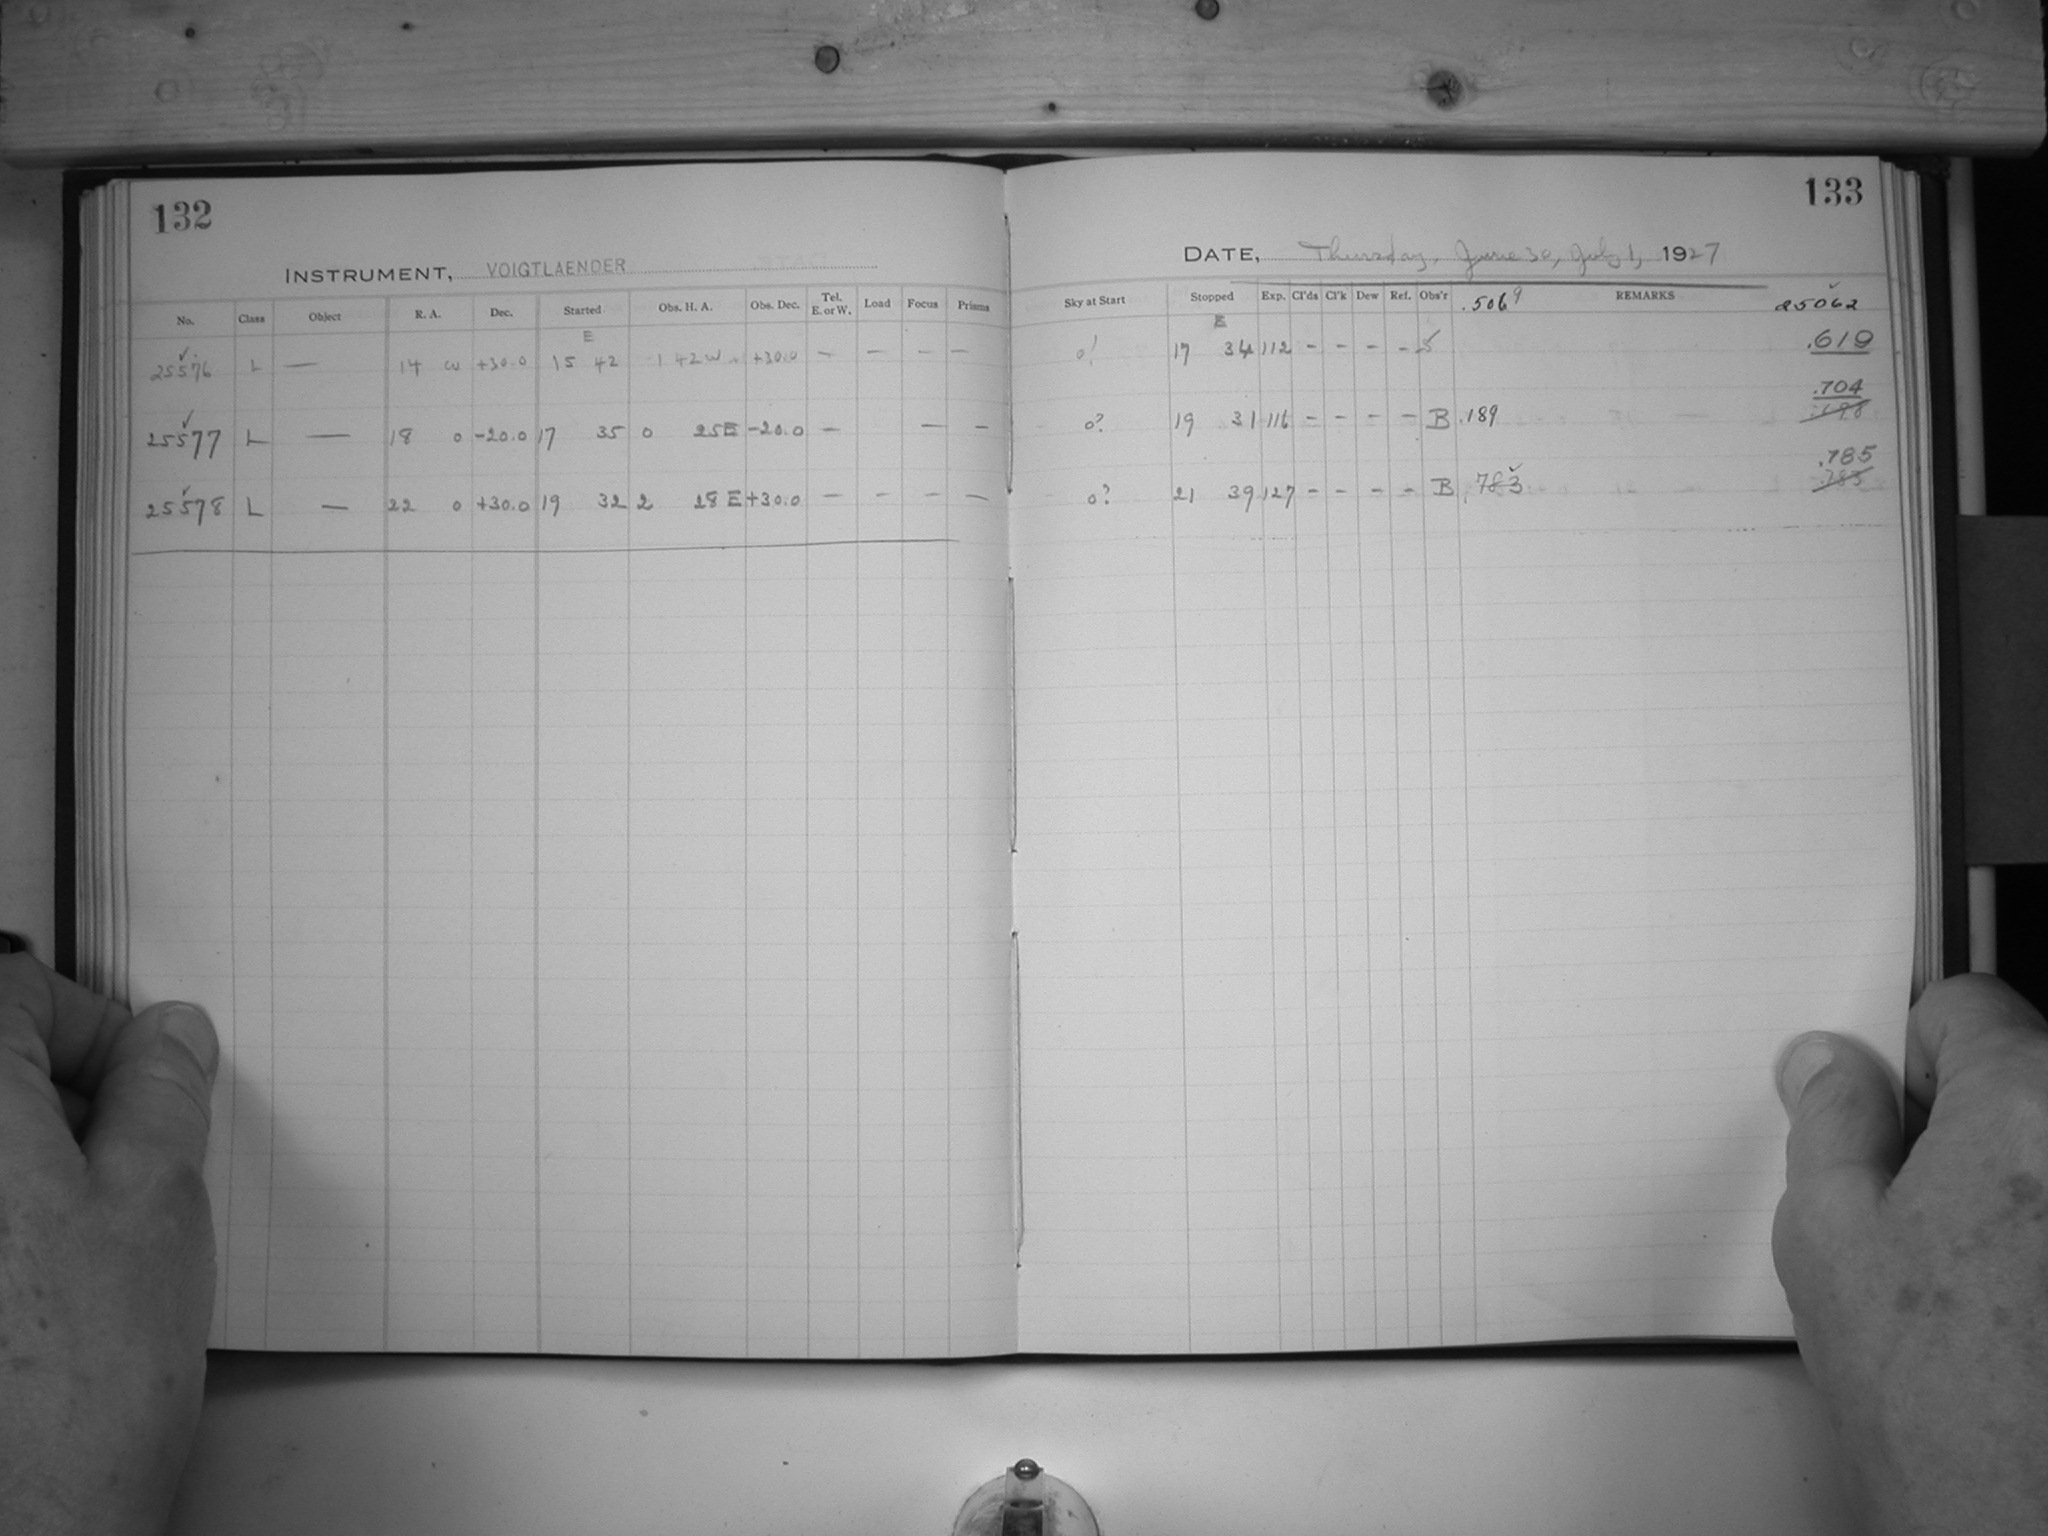 132
INSTRUMENT, VOIGTLAENDER
No. Class Object R. A. Dec. Started Obs. H. A. Obs. Dec. Tel. E. or W. Load Focus Prisms
E
25576 L — 14 +30.0 15 42 1 42 W +30.0 — — — —
25577 L — 18 0 -20.0 17 35 0 25 E -20.0 — — —
25578 L — 22 0 +30.0 19 32 2 28 E +30.0 — — — —
133
DATE, Thursday, June 30, July 1, 1927
Sky at Start Stopped Exp. Cl'ds Cl'k Dew Ref. Obs'r .5069 REMARKS 25062
E
17 34 112 - - - - .619
.704
0? 19 31 116 - - - - B .189
.785
0? 21 39 127 - - - - B .783 .783